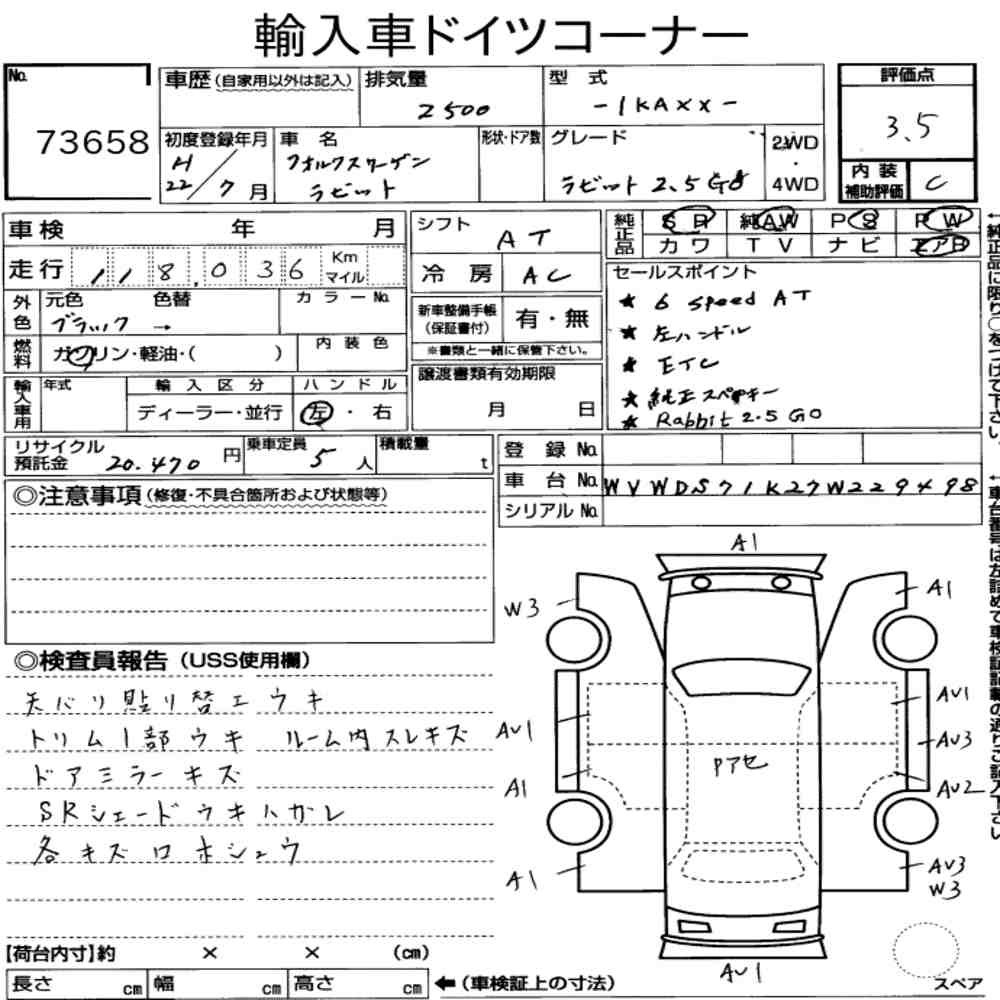 輸入車ドイツコーナー
No.
73658
車歴(自家用以外は記入)
排気量
2500
型式
-1KAXX-
評価点
3.5
内装補助評価
C
初度登録年月
H 22/7月
車名
フォルクスワーゲン
ラビット
形状・ドア数
グレード
ラビット 2.5 GO
2WD
・
4WD
車検 年 月
走行 118,036 Km マイル
外色
元色 色替
ブラック →
カラーNo.
燃料
ガソリン・軽油・( )
内装色
輸入車用
年式
輸入区分
ディーラー・並行
ハンドル
左・右
シフト
AT
冷房
AC
新車整備手帳
(保証書付)
有・無
※書類と一緒に保管下さい。
譲渡書類有効期限
月 日
純正品
SR 純AW PS PW
カワ TV ナビ エアB
セールスポイント
★ 6 speed AT
★ 左ハンドル
★ ETC
★ 純正スペアキー
★ Rabbit 2.5 GO
←純正品に限り○をつけて下さい。
リサイクル預託金
20.470円
乗車定員
5人
積載量
t
登録No.
車台No.
WVWDS71K27W229498
シリアルNo.
←車台番号は左詰めで車検証記載の通りご記入下さい
◎注意事項(修復・不具合箇所および状態等)
◎検査員報告(USS使用欄)
天バリ貼り替エ ウキ
トリム1部ウキ ルーム内スレキズ
ドアミラーキズ
SRシェードウキハガレ
各キズロホシュウ
A1
W3
A1
AU1
AU1
AU3
A1
AU2
Pアセ
A1
AU3
W3
AU1
スペア
【荷台内寸】約 × × (cm)
長さ cm 幅 cm 高さ cm
←(車検証上の寸法)